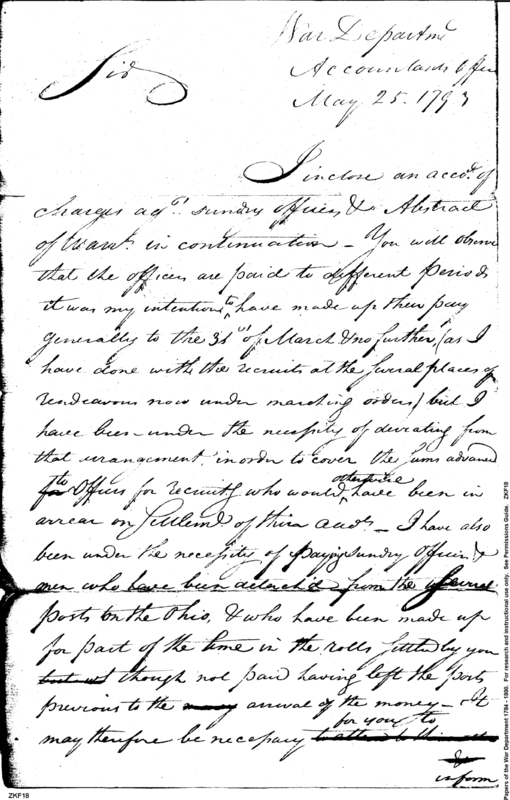 War Departmt
Accountants Office
May 25. 1793
Sir
I inclose an accot. of
charges agst. sundry officers & Abstract
of Warrts. in continuation – You will observe
that the officers are paid to different periods
it was my intention to have made up their pay
generally to the 31st of March & no further, (as I
have done with the recruits at the several places of
rendezvous now under marching orders) but I
have been under the necessity of deviating from
that arrangement, in order to cover the sums advanced
to Officers for recruitg who would otherwise have been in
arrear on settlemt of their accts – I have also
been under the necessity of paying sundry officers &
men who have been detached from the several
posts on the Ohio, & who have been made up
for part of the time in the rolls settled by you
though not paid having left the posts
previous to the arrival of the money – It
may therefore be necessary for you to
&
inform
ZKF18
Papers of the War Department 1784 - 1800. For research and instructional use only. See Permissions Guide. ZKF18